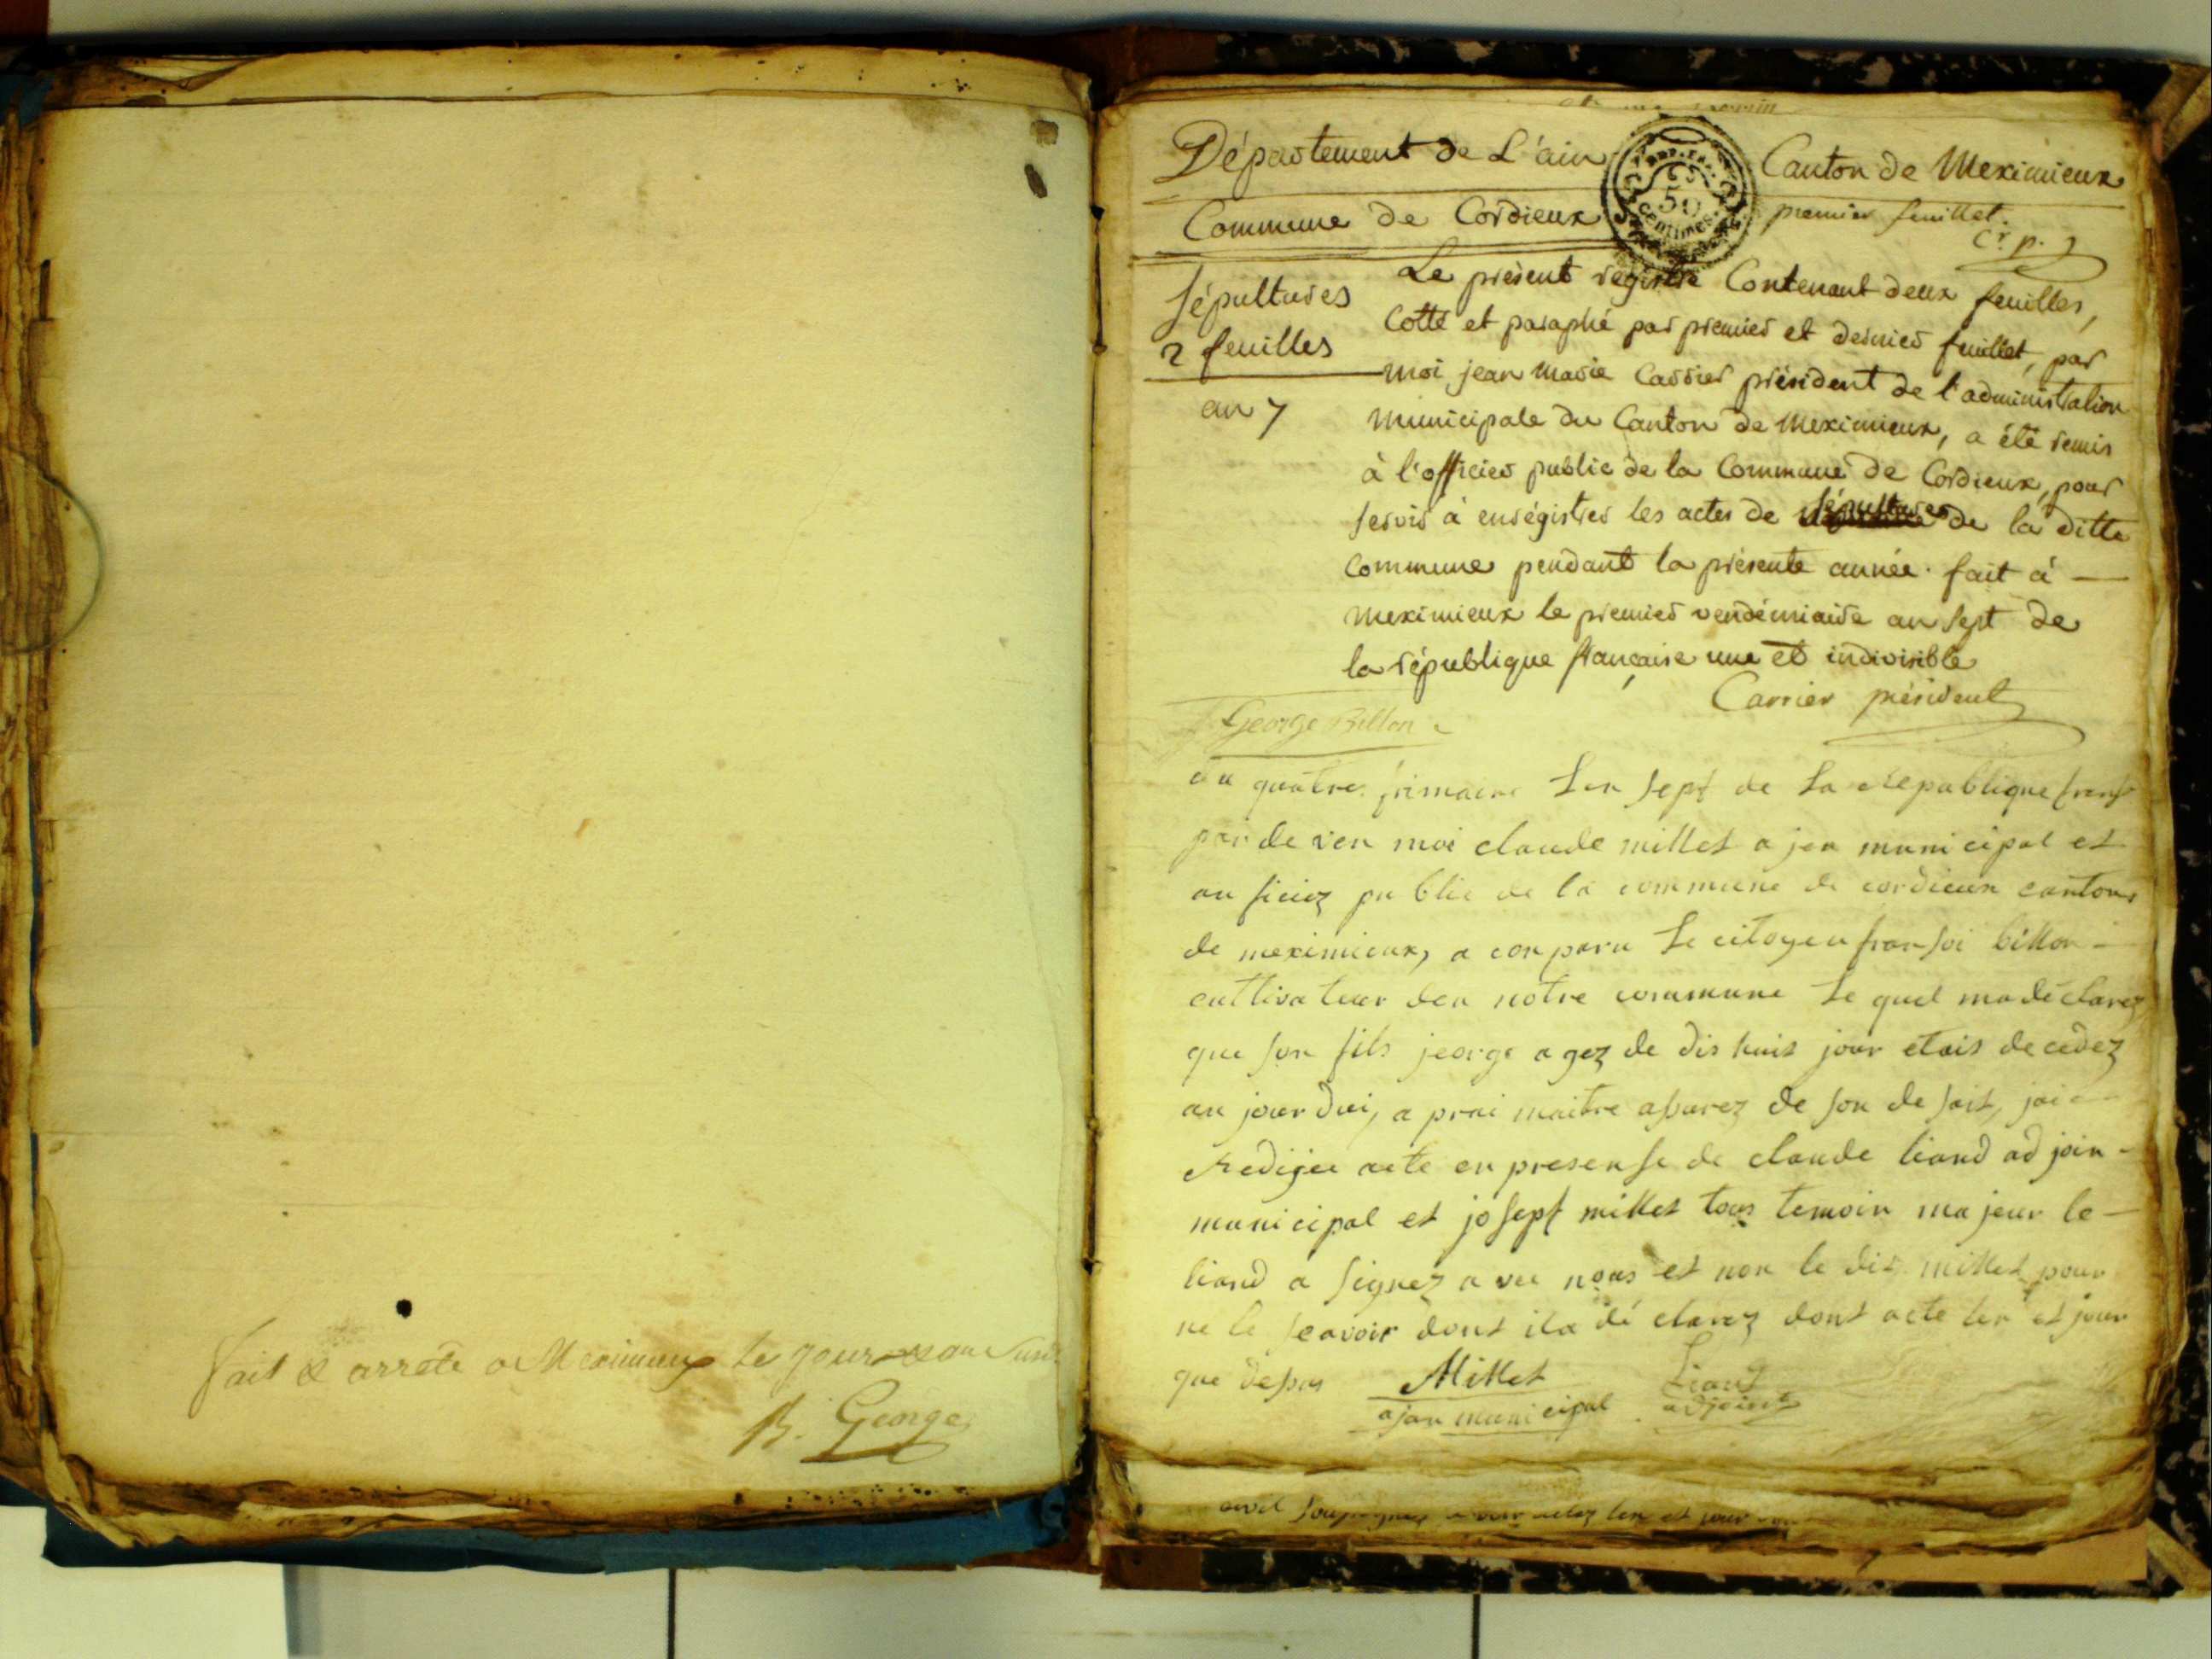 fait & arrêté a Meximieux le jour & an susd.
B. George
Département de L'ain
Canton de Meximieux
REP. FRA.
50
centimes
Commune de Cordieux
premier feuillet.
Cr. p.
Sépultures
2 feuilles
an 7
Le présent registre Contenant deux feuilles,
Cotté et paraphé par premier et dernier feuillet, par
moi jean marie Carrier président de l'administration
municipale du Canton de Meximieux, a été remis
à l'officier public de la Commune de Cordieux, pour
servir à enrégistrer les actes de sépultures de la ditte
commune pendant la présente année. fait à —
meximieux le premier vendémiaire an sept de
la république française une et indivisible
Carrier président
George Billon
du quatre frimaire Len sept de La Republique frans
par de ven moi claude millet a jen municipal et
au ficiez pu blic de la commune de cordieux canton
de meximieux, a con paru Le citoyen fransoi billon —
cultivateur den notre commune Le quel ma déclarez
que son fils jeorge a gez de dis huit jour etait de cedez
au jour dui, a prai maitre assurez de son de sait, jai
Redijee acte en presense de claude liand ad join -
municipal et josept millet tous temoin ma jeur le —
liand a signez a vec nous et non le dit millet pour
ne le scavoir dont ila dé clarez dont acte len et jour
que desus
Millet
a jan municipal
Liand
adjoint
len et jour